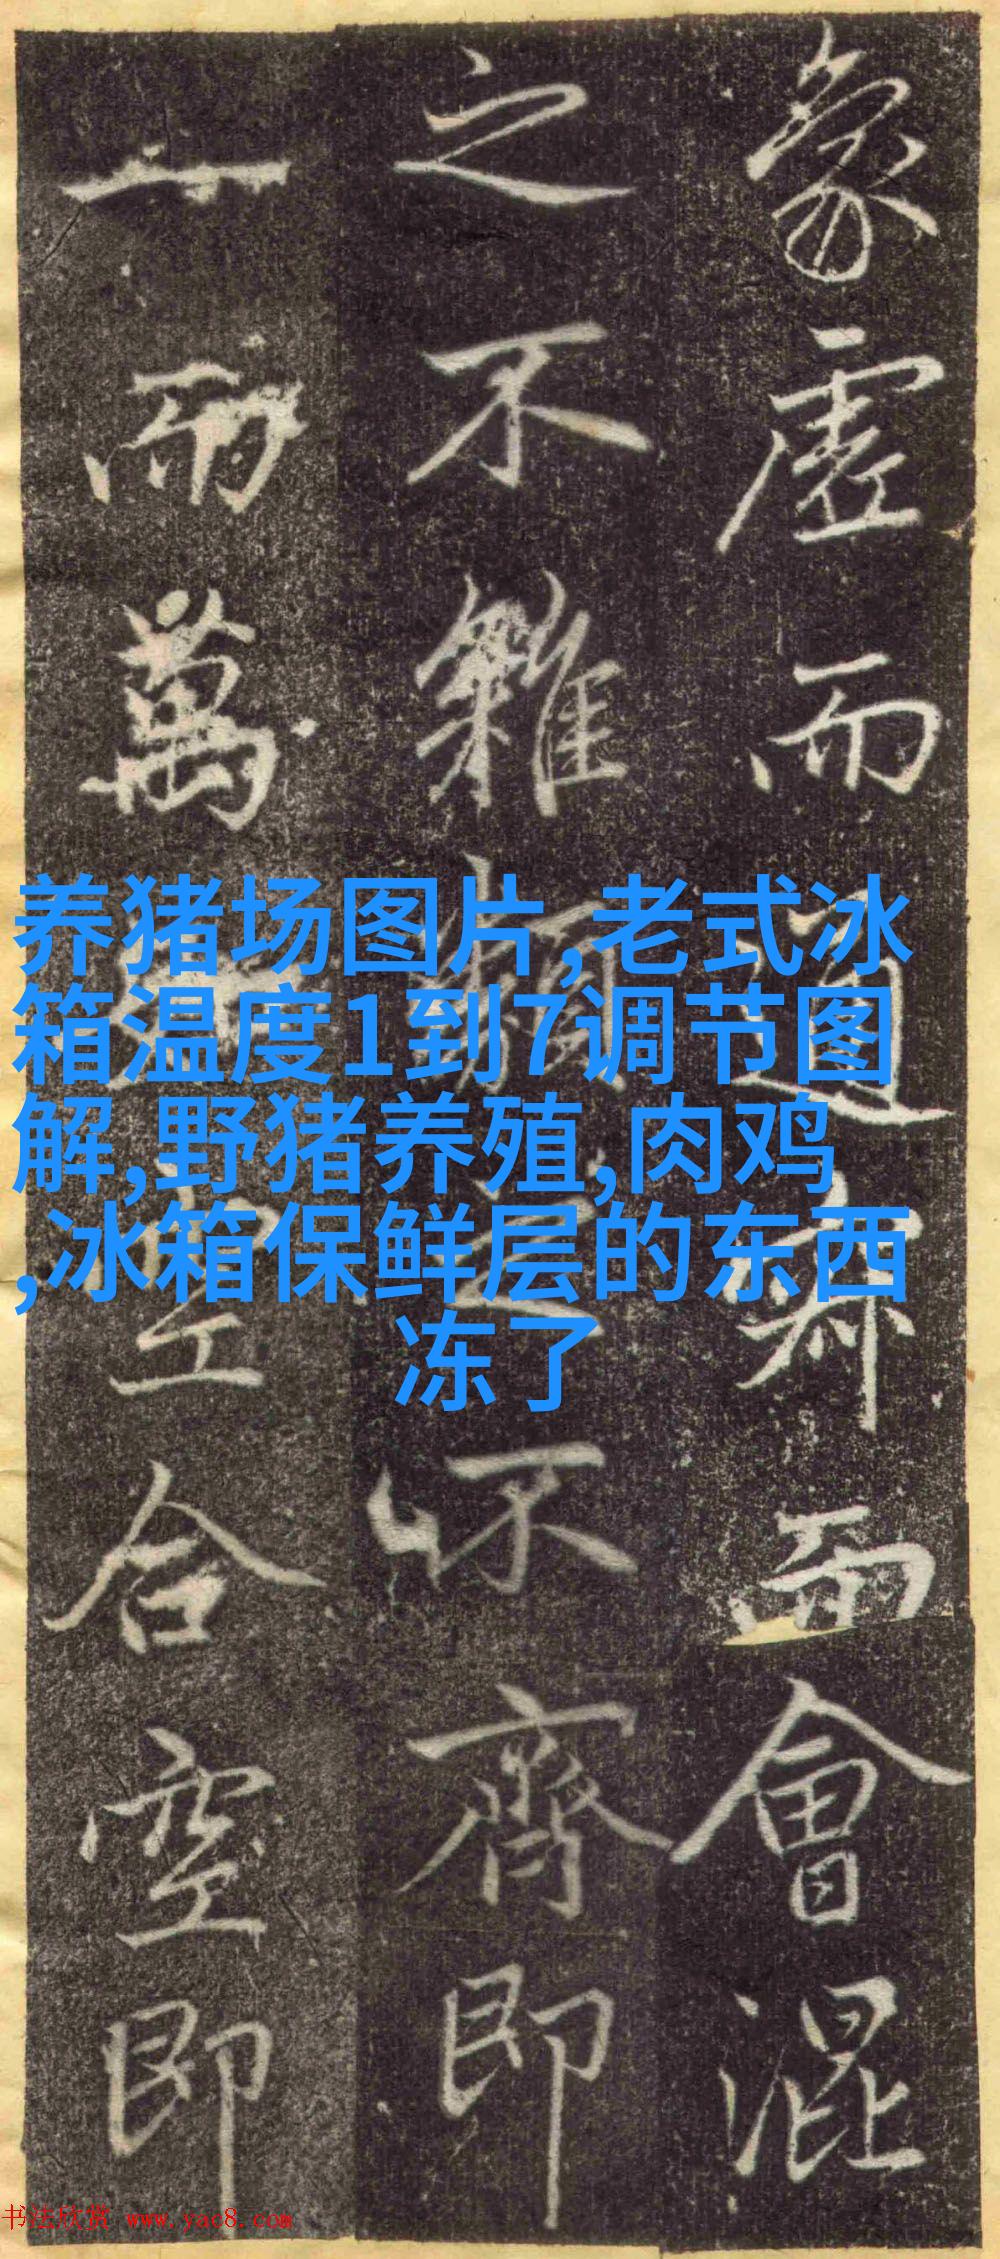 象虛而而會混
之不雜類之不齊即
一而萬空合空即
养猪场图片,老式冰
箱温度1到7调节图
解,野猪养殖,肉鸡
,冰箱保鲜层的东西
冻了
书法欣赏 www.yac8.com